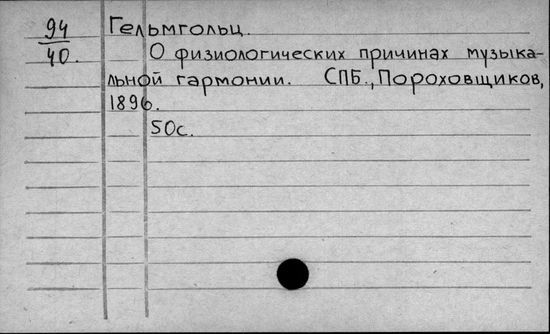 94
40.
Гельмгольц.
О физиологических причинах музыка-
льной гармонии. СПБ., Пороховщиков,
1896.
50с.